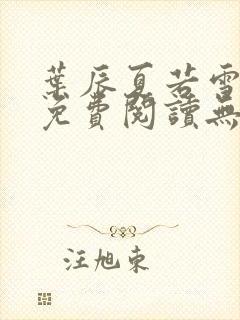 葉辰夏若雪
免費閱讀無
汪旭東